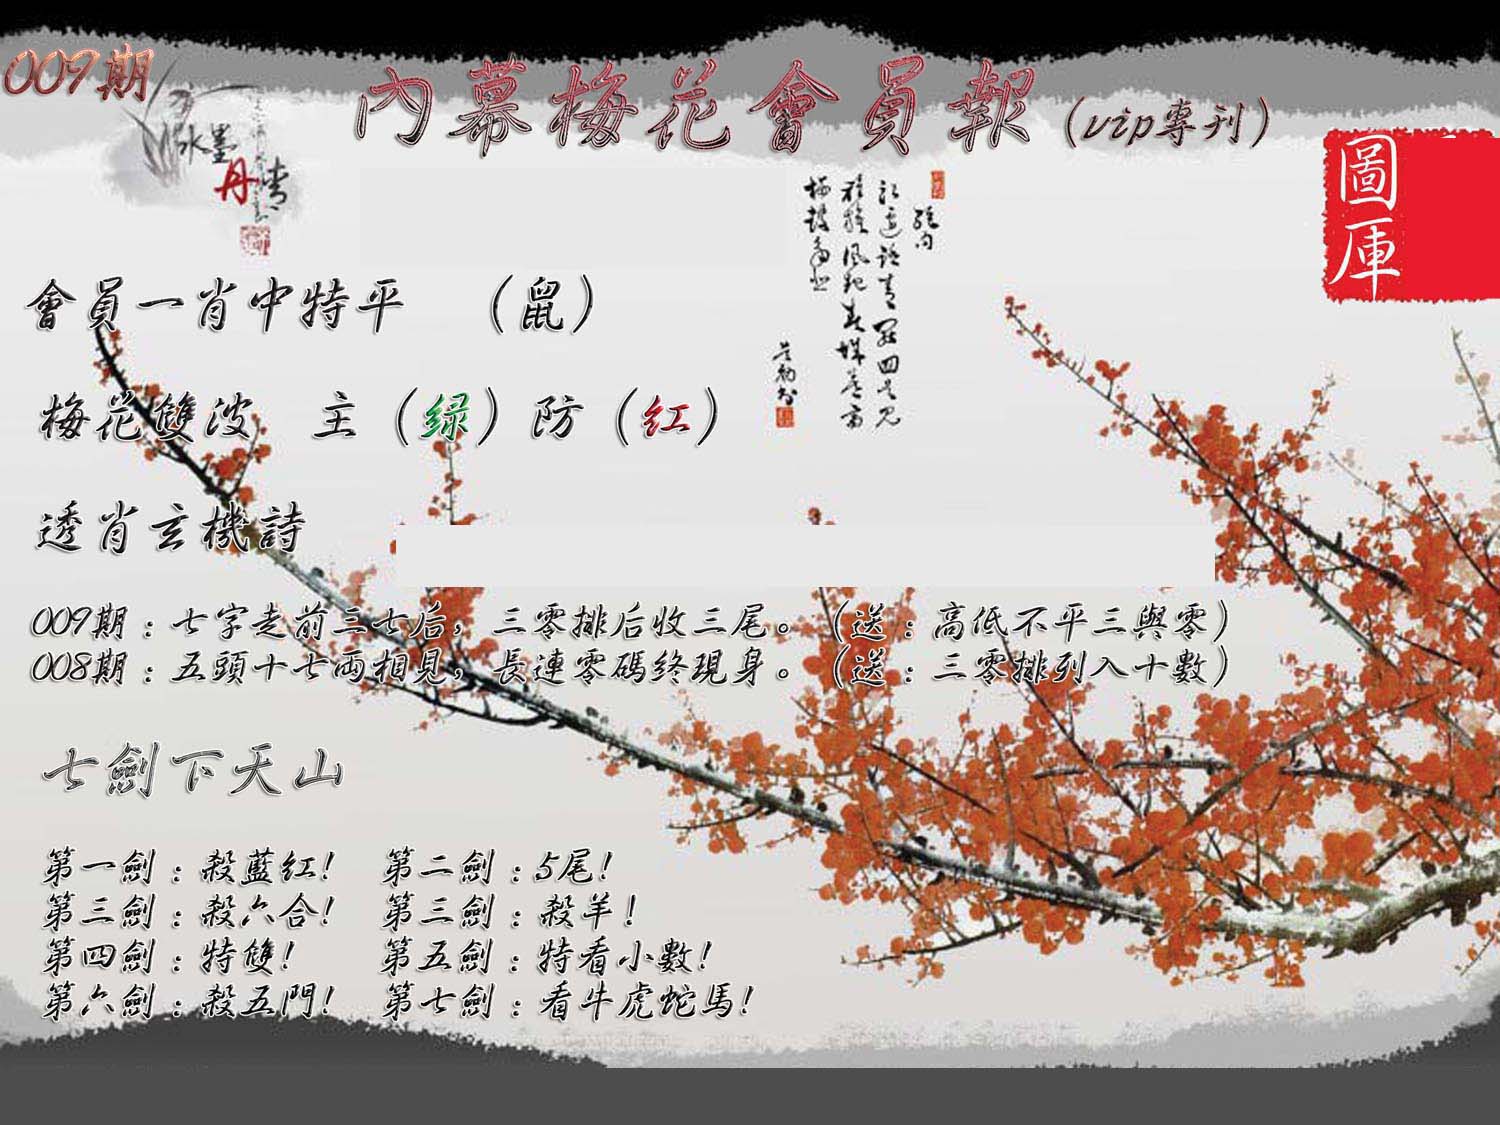 009期
內幕梅花會員報（vip專刊）
水墨
丹青
圖庫
會員一肖中特平　（鼠）
梅花雙波　主（绿）防（红）
透肖玄機詩
009期：七字走前三七后，三零排后收三尾。（送：高低不平三與零）
008期：五頭十七两相見，長連零碼終現身。（送：三零排列入十數）
七劍下天山
第一劍：殺藍紅！　第二劍：5尾！
第三劍：殺六合！　第三劍：殺羊！
第四劍：特雙！　第五劍：特看小數！
第六劍：殺五門！　第七劍：看牛虎蛇馬！